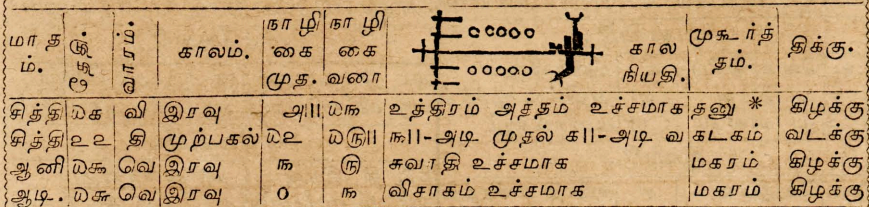 மாதம். தேதி. வாரம். காலம். நாழிகை முத. நாழிகை வரை காலநியதி. முகூர்த்தம். திக்கு.
சித்தி ௰௧ வி இரவு ௮॥ ௰௩ உத்திரம் அத்தம் உச்சமாக தனு * கிழக்கு
சித்தி ௨௨ தி முற்பகல் ௰௨ ௰௫॥ ௩॥-அடி முதல் ௧॥-அடி வ கடகம் வடக்கு
ஆனி ௰௬ வெ இரவு ௩ ௫ சுவாதி உச்சமாக மகரம் கிழக்கு
ஆடி. ௰௬ வெ இரவு 0 ௩ விசாகம் உச்சமாக மகரம் கிழக்கு